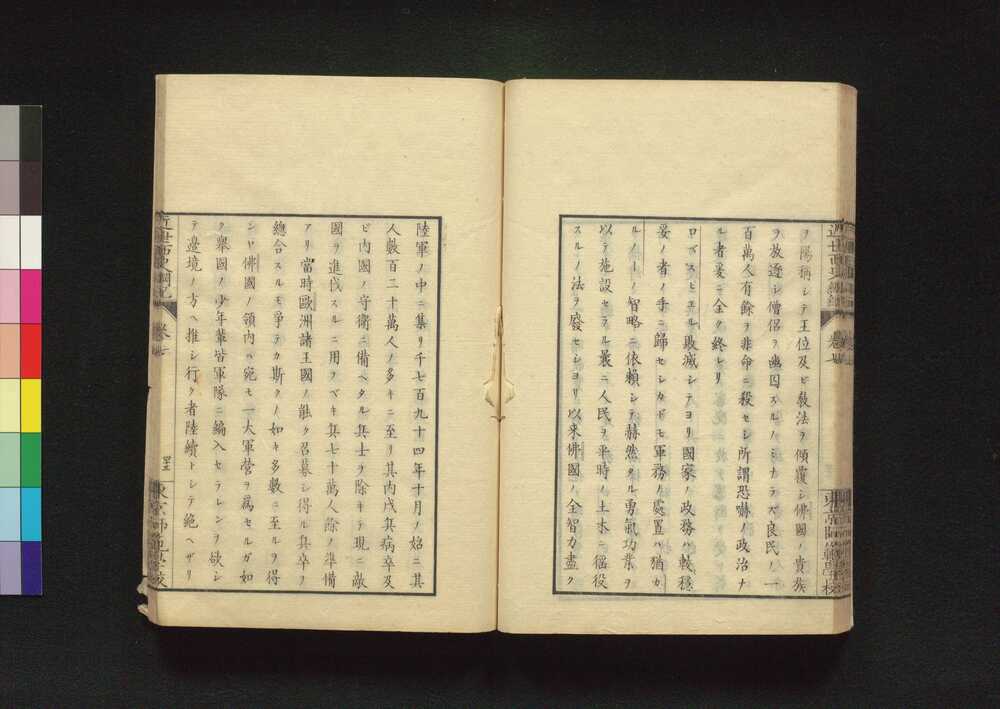 ヲ陽稱シテ王位及ビ敎法ヲ傾覆シ佛國ノ貴族
ヲ放逐シ僧侶ヲ幽囚スルノミナラズ良民ノ一
百萬人有餘ヲ非命ニ殺セシ所謂恐嚇ノ政治ナ
ル者爰ニ全ク終レリ
ロバスピエル敗滅シテヨリ國家ノ政務ハ較穩
妥ノ者ノ手ニ歸セシカドモ軍務ノ處置ハ猶カ
ルノーノ智略ニ依賴シテ赫然タル勇氣功業ヲ
以テ施設セラル曩ニ人民ヲ平時ノ土木ニ徭役
スルノ法ヲ廢セシヨリ以來佛國ノ全智力盡ク
陸軍ノ中ニ集リ千七百九十四年十月ノ始ニ其
人數百二十萬人ノ多キニ至リ其内戍兵病卒及
ビ内國ノ守衛ニ備ヘタル兵士ヲ除キテ現ニ敵
國ヲ進伐スルニ用ヲベキ兵七十萬人餘ノ準備
アリ當時歐洲諸王國ノ能ク召募シ得ル兵卒ヲ
總合スルモ爭テカ斯クノ如キ多數ニ至ルヲ得
ンヤ佛國ノ領内ハ宛モ一大軍營ヲ爲セルガ如
ク舉國ノ少年輩皆軍隊ニ編入セラレンヲ欲シ
テ邊境ノ方ヘ推シ行ク者陸續トシテ絶ヘザリ
近世西史綱紀
卷七
東京師範學校